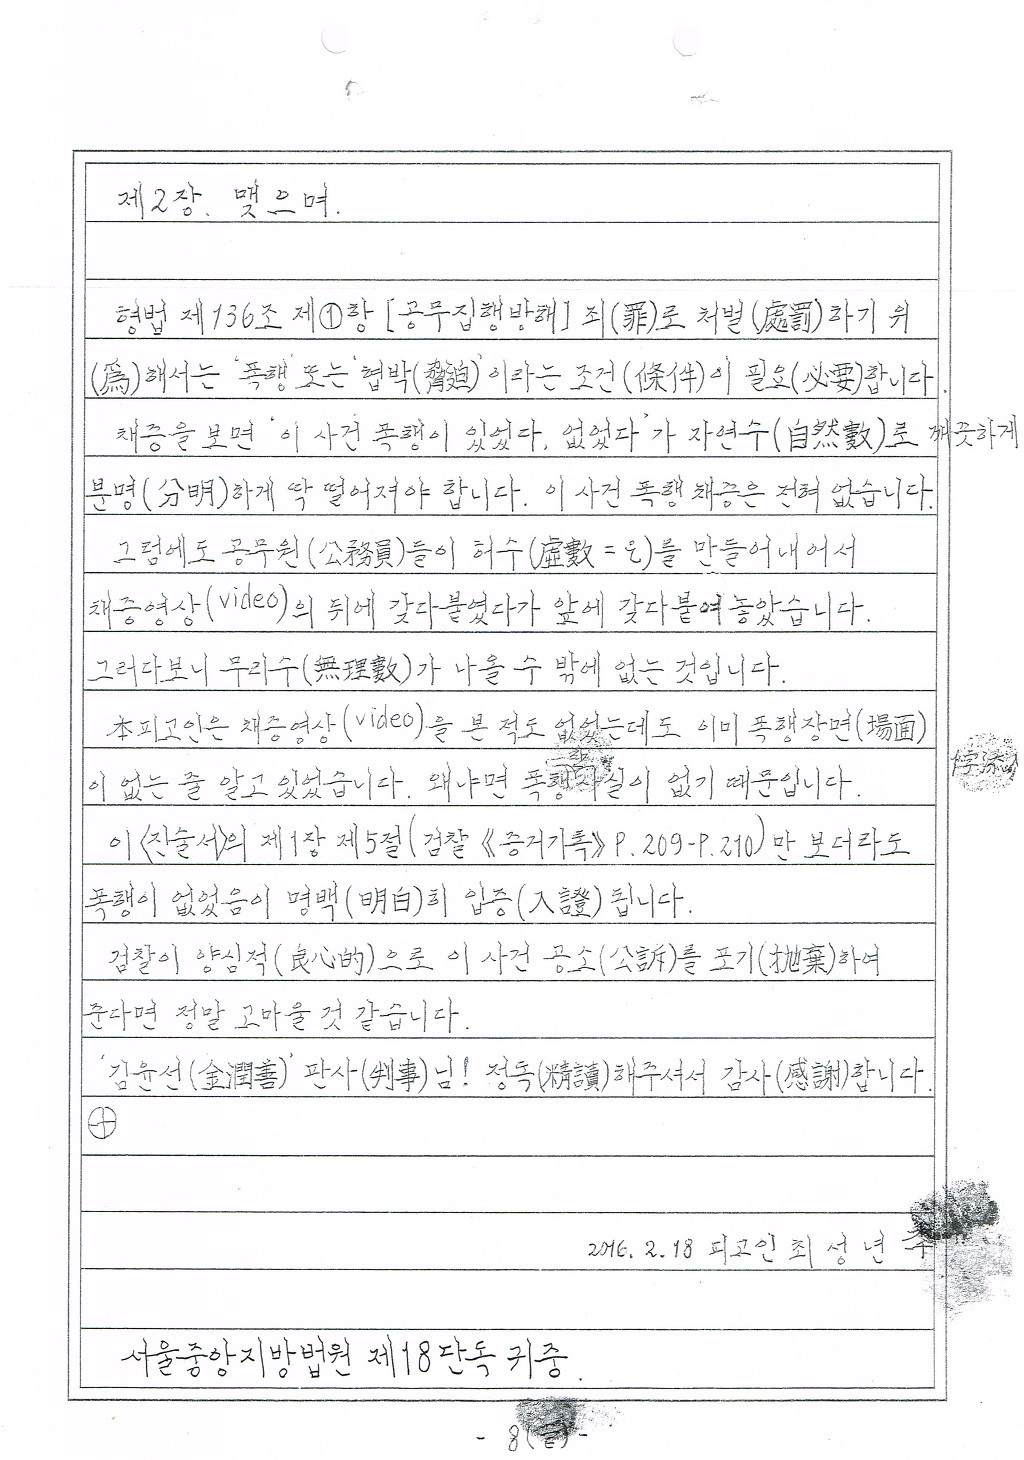 제2장. 맺으며.
형법 제136조 제①항 [공무집행방해] 죄(罪)로 처벌(處罰)하기 위
(爲)해서는 '폭행' 또는 '협박(脅迫)'이라는 조건(條件)이 필요(必要)합니다.
채증을 보면 '이 사건 폭행이 있었다, 없었다'가 자연수(自然數)로 깨끗하게
분명(分明)하게 딱 떨어져야 합니다. 이 사건 폭행 채증은 전혀 없습니다.
그럼에도 공무원(公務員)들이 허수(虛數=i)를 만들어내어서
채증영상(video)의 뒤에 갖다붙였다가 앞에 갖다붙여놓았습니다.
그러다보니 무리수(無理數)가 나올 수 밖에 없는 것입니다.
本피고인은 채증영상(video)을 본 적도 없었는데도 이미 폭행장면(場面)
이 없는 줄 알고 있었습니다. 왜냐면 폭행사실이 없기 때문입니다.
이 〈진술서〉의 제1장 제5절(검찰 《증거기록》 P.209-P.210)만 보더라도
폭행이 없었음이 명백(明白)히 입증(入證)됩니다.
검찰이 양심적(良心的)으로 이 사건 공소(公訴)를 포기(抛棄)하여
준다면 정말 고마울 것 같습니다.
'김윤선(金潤善)' 판사(判事)님! 정독(精讀)해주셔서 감사(感謝)합니다.
2016. 2. 18 피고인 최성년
서울중앙지방법원 제18단독 귀중.
- 8(끝) -